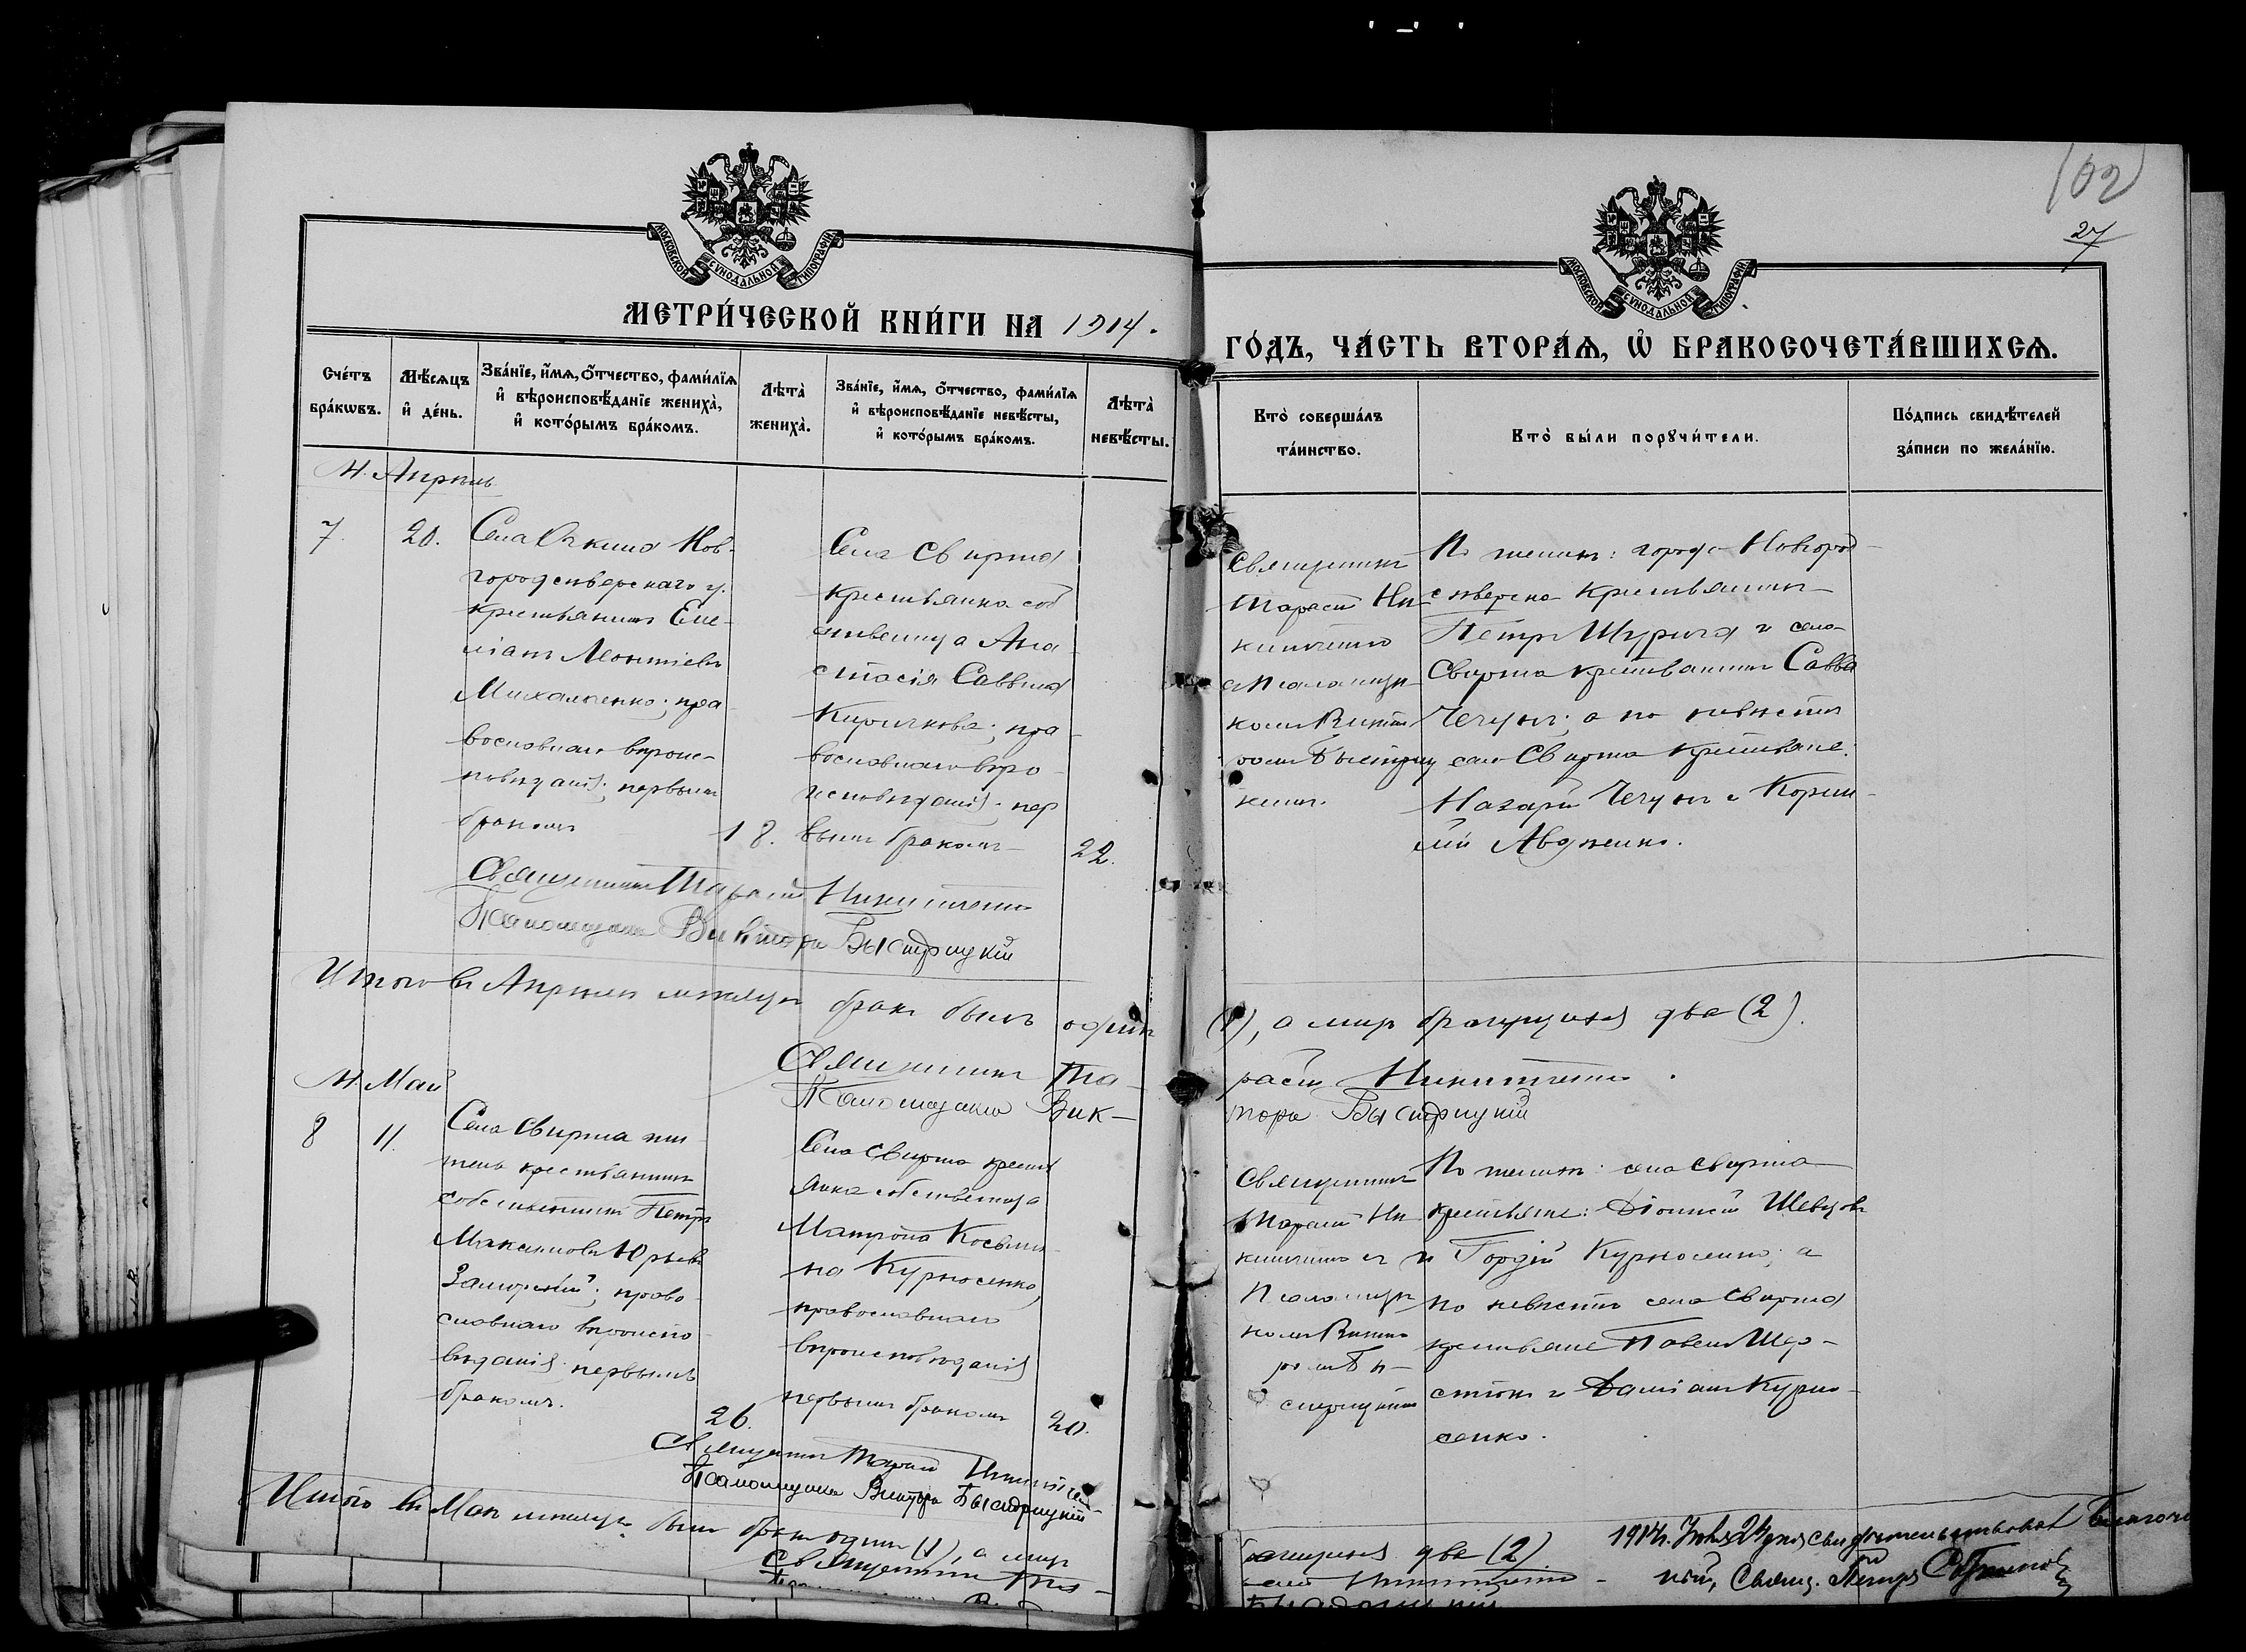 102
27
МОСКОВСКОЙ СУНОДАЛЬНОЙ ТИПОГРАФІИ
МОСКОВСКОЙ СУНОДАЛЬНОЙ ТИПОГРАФІИ
МЕТРИ́ЧЕСКОЙ КНИ́ГИ НА 1914.
ГО́ДЪ, ЧА́СТЬ ВТОРА́Ѧ, Ѡ҆ БРАКОСОЧЕТА́ВШИХСѦ.
Сче́тъ
бра́кѡвъ.
Мѣ́сѧцъ
и҆ де́нь.
Зва́нїе, и҆́мѧ, ѻ҆́тчество, фами́лїѧ
и҆ вѣроисповѣ́данїе жениха̀,
и҆ кото́рымъ бра́комъ.
Лѣта̀
жениха̀.
Зва́нїе, и҆́мѧ, ѻ҆́тчество, фами́лїѧ
и҆ вѣроисповѣ́данїе невѣ́сты,
и҆ кото́рымъ бра́комъ.
Лѣта̀
невѣ́сты.
Кто̀ соверша́лъ
та́инство.
Кто̀ бы́ли порꙋчи́тели.
По́дпись свидѣ́телей
за́писи по жела́нїю.
М. Апрѣль
7.
20.
Села Нов-
городсѣверскаго у.
крестьянинъ Еме-
ліанъ Леонтіевъ
Михаленко; пра-
вославнаго вѣроис-
повѣданія; первымъ
бракомъ
18.
Села Свирма
крестьянка соб
ственница Ана-
стасія Саввина
Киричкова; пра-
вославнаго вѣро-
исповѣданія; пер
вымъ бракомъ
22.
Священникъ
Тарасій Ни-
китченко
съ псаломщи-
комъ Викто-
ромъ Быстриц-
кимъ.
По женихѣ: города Новгород-
сѣверска крестьянинъ
Петръ Шурига и села
Свирма крестьянинъ Савва
Чечунъ; а по невѣстѣ
села Свирма крестьяне:
Назарій Чечунъ и Корни-
лій Авдѣенко.
Священникъ Тарасій Никитченко
Псаломщикъ Викторъ Быстрицкій
Итого въ Апрѣлѣ мѣсяцѣ бракъ былъ одинъ (1), а лицъ брачущихся два (2).
Священникъ Тарасій Никитченко.
Псаломщикъ Викторъ Быстрицкій
М. Май
8
11.
Села Свирма жи-
тель крестьянинъ
собственникъ Петръ
Максимовъ Юрьевъ
Заморскій; право-
славнаго вѣроиспо-
вѣданія; первымъ
бракомъ.
26.
Села Свирма кресть
янка собственница
Матрона Косьми-
на Курносенко,
православнаго
вѣроисповѣданія
первымъ бракомъ
20.
Священникъ
Тарасій Ни-
китченко съ
Псаломщи-
комъ Викто-
ромъ Бы-
стрицкимъ
По женихѣ: села Свирма
крестьяне: Діонисій Шевцовъ
и Гордій Курносенко; а
по невѣстѣ села Свирма
крестьяне Павелъ Шер-
стюкъ и Даміанъ Курно-
сенко.
Священникъ Тарасій Никитченко
Псаломщикъ Викторъ Быстрицкій
Итого въ Маѣ мѣсяцѣ былъ бракъ одинъ (1), а лицъ
брачущихся два (2)
Священникъ Та-
расій Никитченко
Быстрицкій
1914 г. Іюня 24 дня свидѣтельствовалъ Благочин
ный, Свящ. Петръ